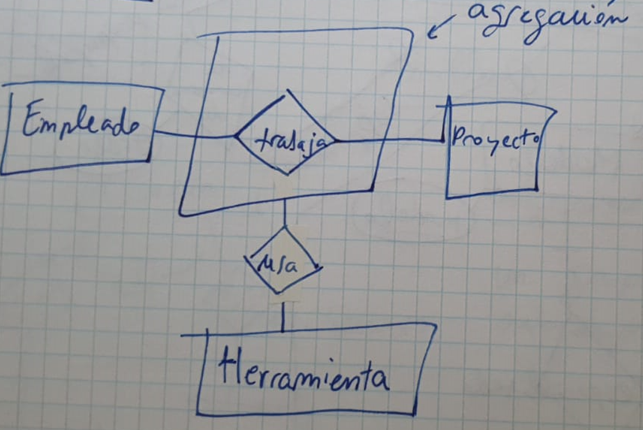 agregación
Empleado
trabaja
Proyecto
usa
Herramienta